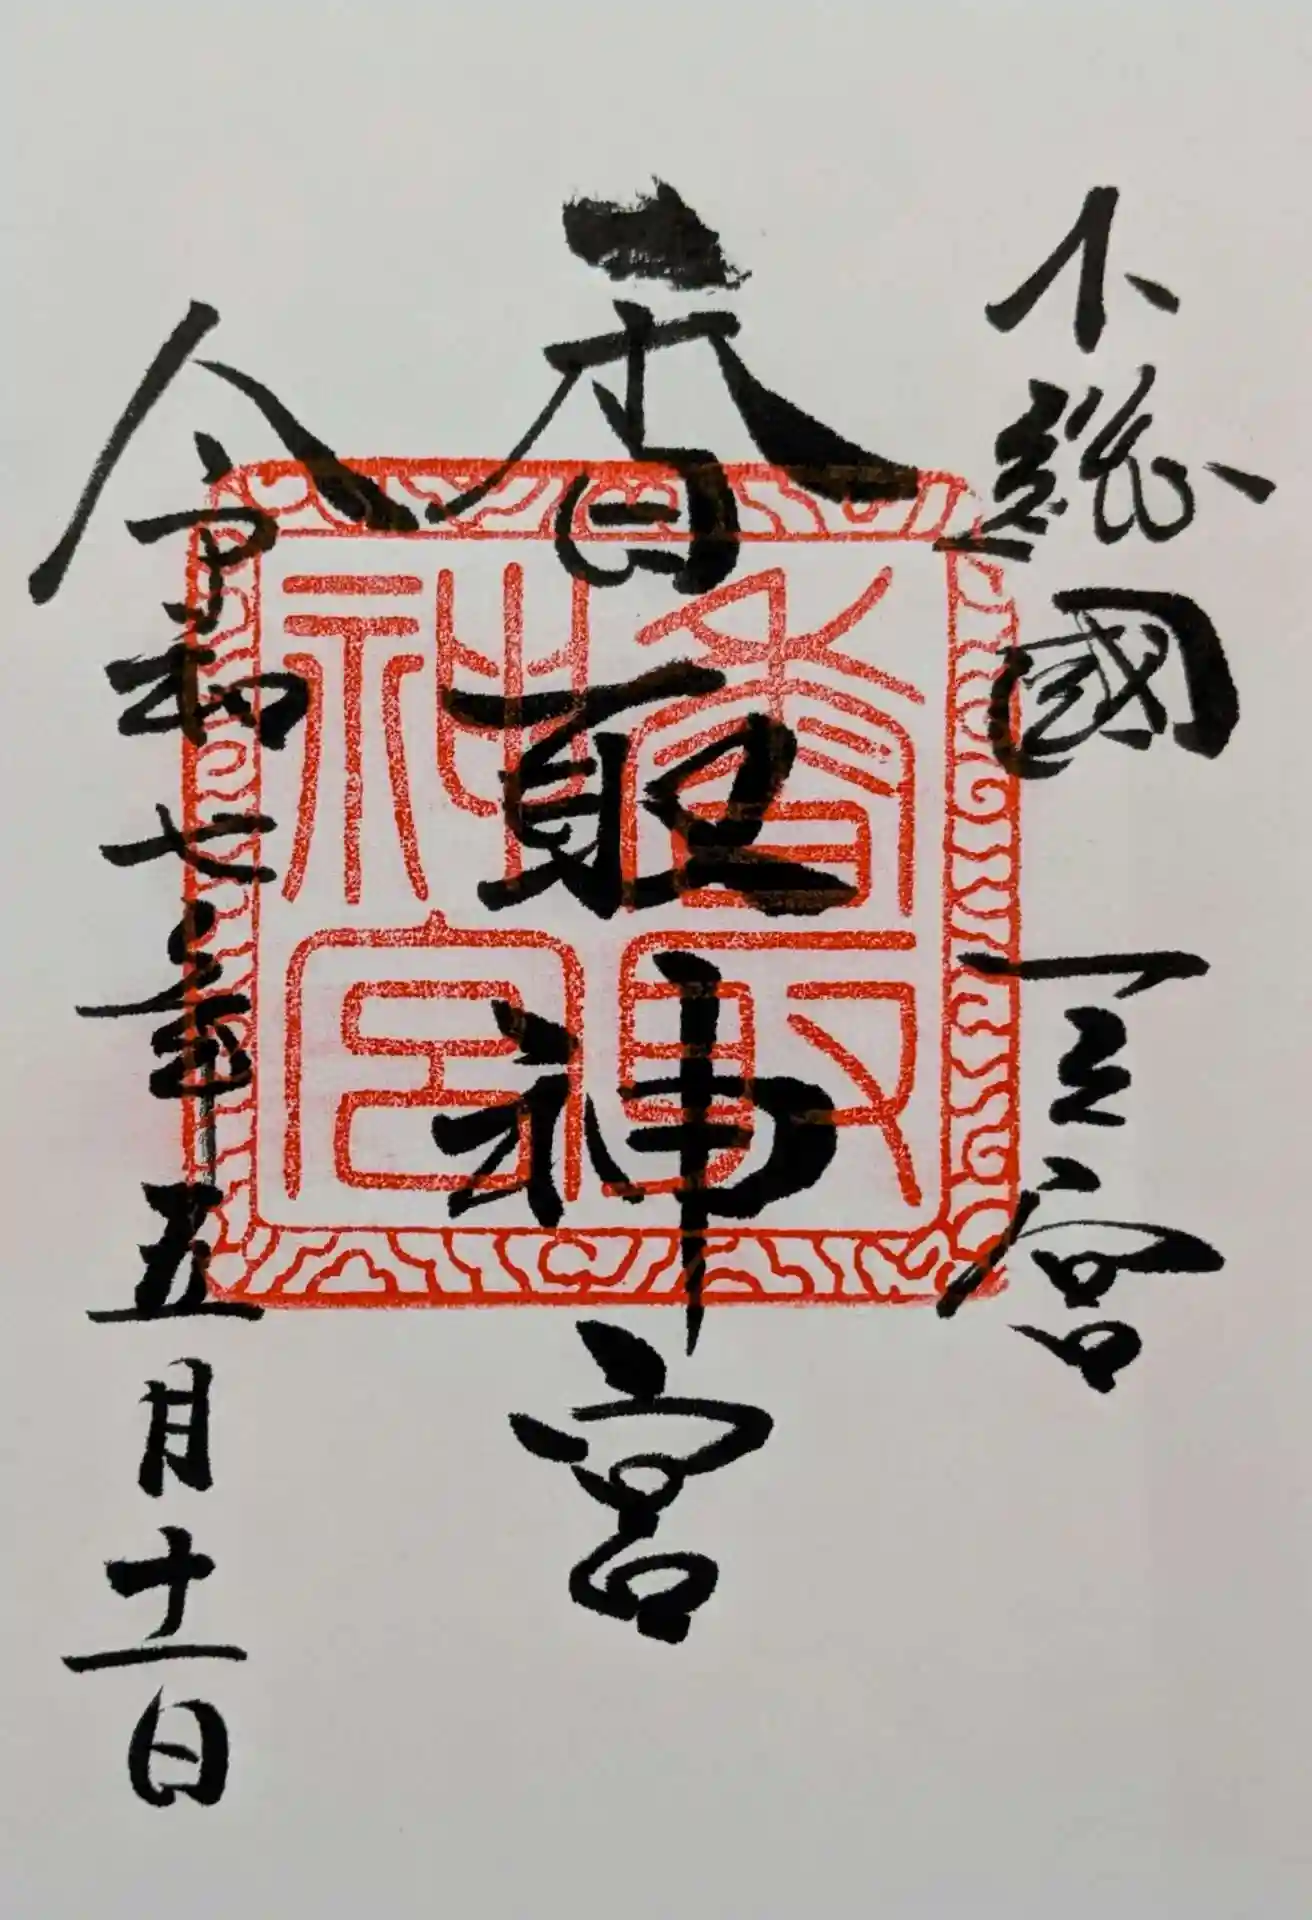 下総國 一之宮
香取神宮
令和七年五月十一日
香取神宮